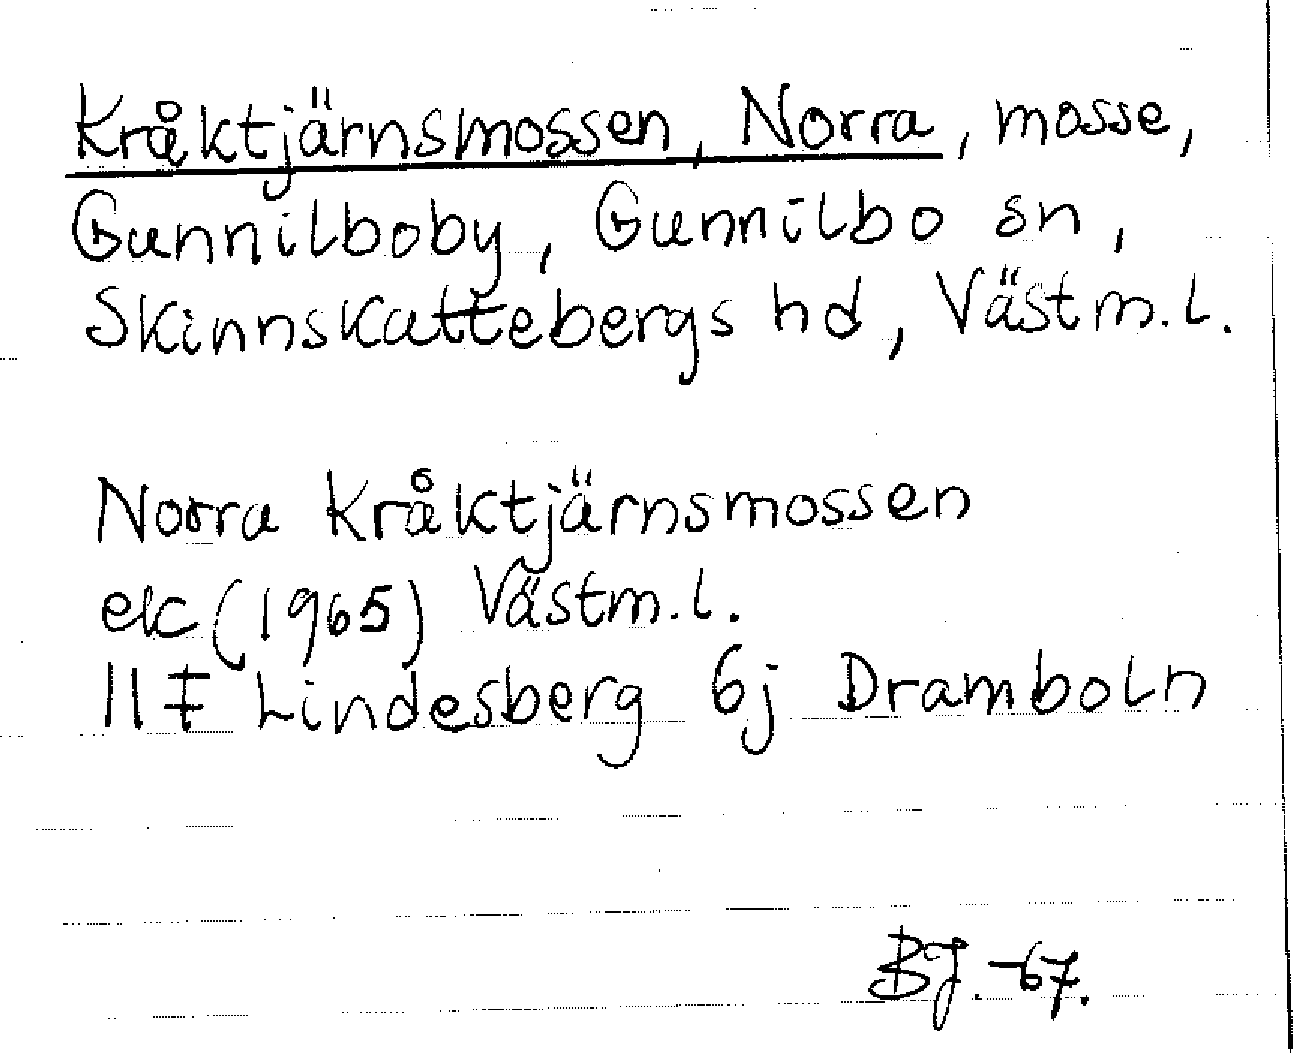 Kråktjärnsmossen, Norra, mosse,
Gunnilboby, Gunnilbo sn,
Skinnskattebergs hd, Västm.l.
Norra Kråktjärnsmossen
ek (1965) Västm.l.
11F Lindesberg 6j Dramboln
BJ.-67.